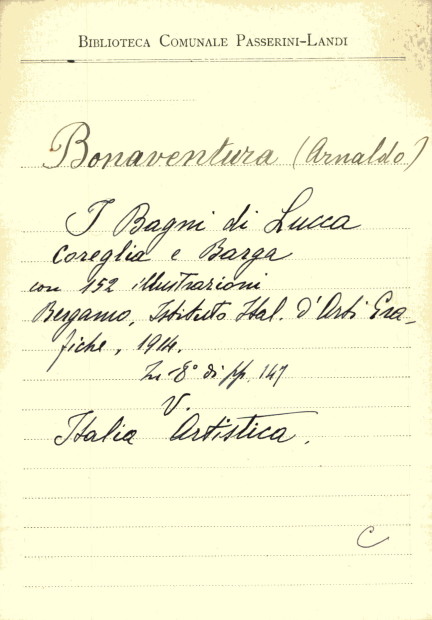 BIBLIOTECA COMUNALE PASSERINI-LANDI
Bonaventura (Arnaldo)
I Bagni di Lucca
Coreglia e Barga
con 152 illustrazioni
Bergamo, Istituto Ital. d'Arti Gra-
fiche, 1914.
In-8º di pp. 147
V.
Italia Artistica.
C